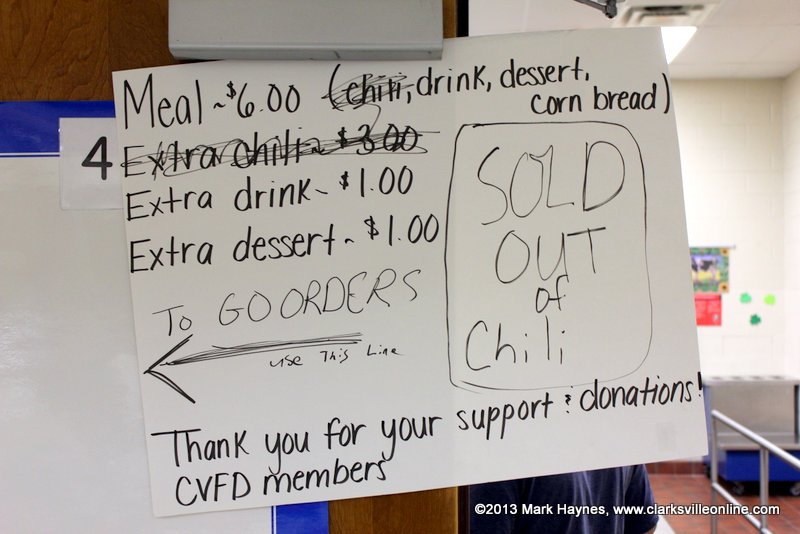 4
Meal ~ $6.00 (chili, drink, dessert,
corn bread)
Extra chili ~ $3.00
Extra drink ~ $1.00
Extra dessert ~ $1.00
SOLD
OUT
of
Chili
To GO ORDERS
use This Line
Thank you for your support & donations!
CVFD members
©2013 Mark Haynes, www.clarksvilleonline.com